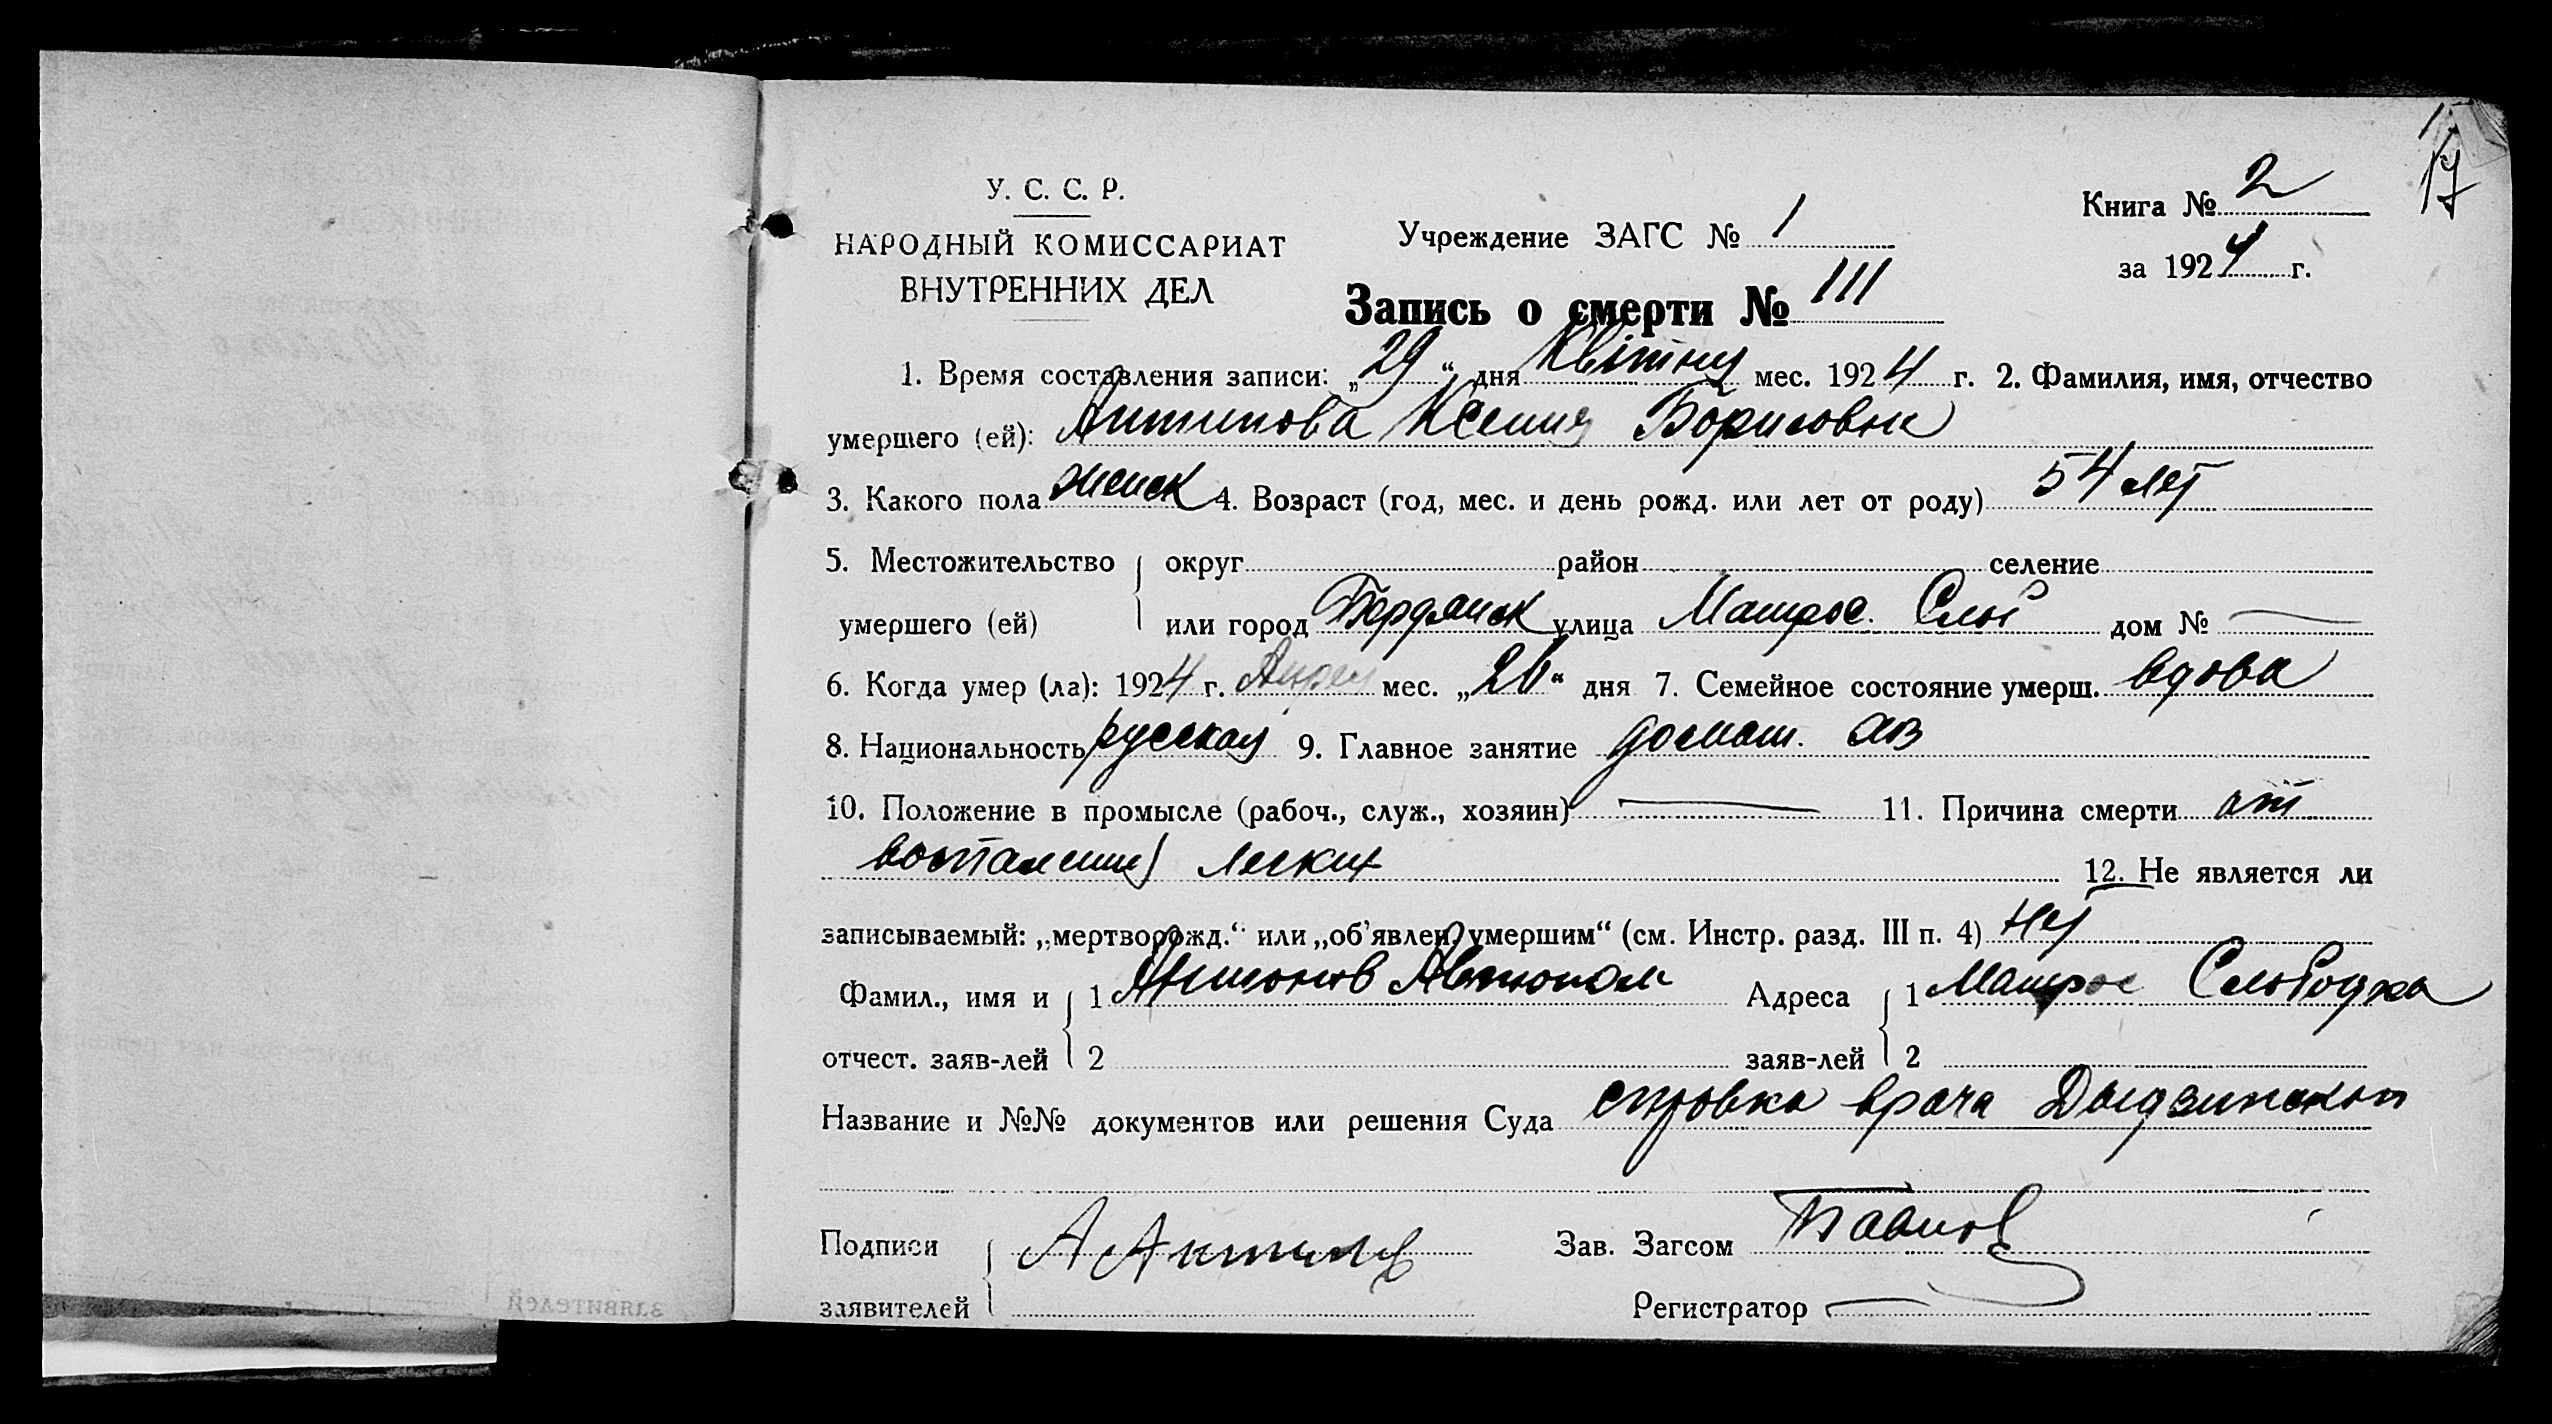 17
У. С. С. Р.
НАРОДНЫЙ КОМИССАРИАТ
ВНУТРЕННИХ ДЕЛ
Учреждение ЗАГС № 1
Книга № 2
за 1924 г.
Запись о смерти № 111
1. Время составления записи: „29“ дня Квітня мес. 1924 г. 2. Фамилия, имя, отчество
умершего (ей): Антипова Ксения Борисовна
3. Какого пола женск 4. Возраст (год, мес. и день рожд. или лет от роду) 54 лет
5. Местожительство округ район селение
умершего (ей) или город Бердянск улица Матрос. Слоб дом № —
6. Когда умер (ла): 1924 г. Апрел мес. „26“ дня 7. Семейное состояние умерш. вдова
8. Национальность русская 9. Главное занятие домаш. хоз
10. Положение в промысле (рабоч., служ., хозяин) — 11. Причина смерти от
воспаления легких 12. Не является ли
записываемый: „мертворожд.“ или „об'явлен. умершим“ (см. Инстр. разд. III п. 4) Нет
Фамил., имя и 1 Адреса 1 Матрос Слободка
отчест. заяв-лей 2 заяв-лей 2
Название и №№ документов или решения Суда справка врача
Подписи А Антипов Зав. Загсом
заявителей Регистратор
заявителей